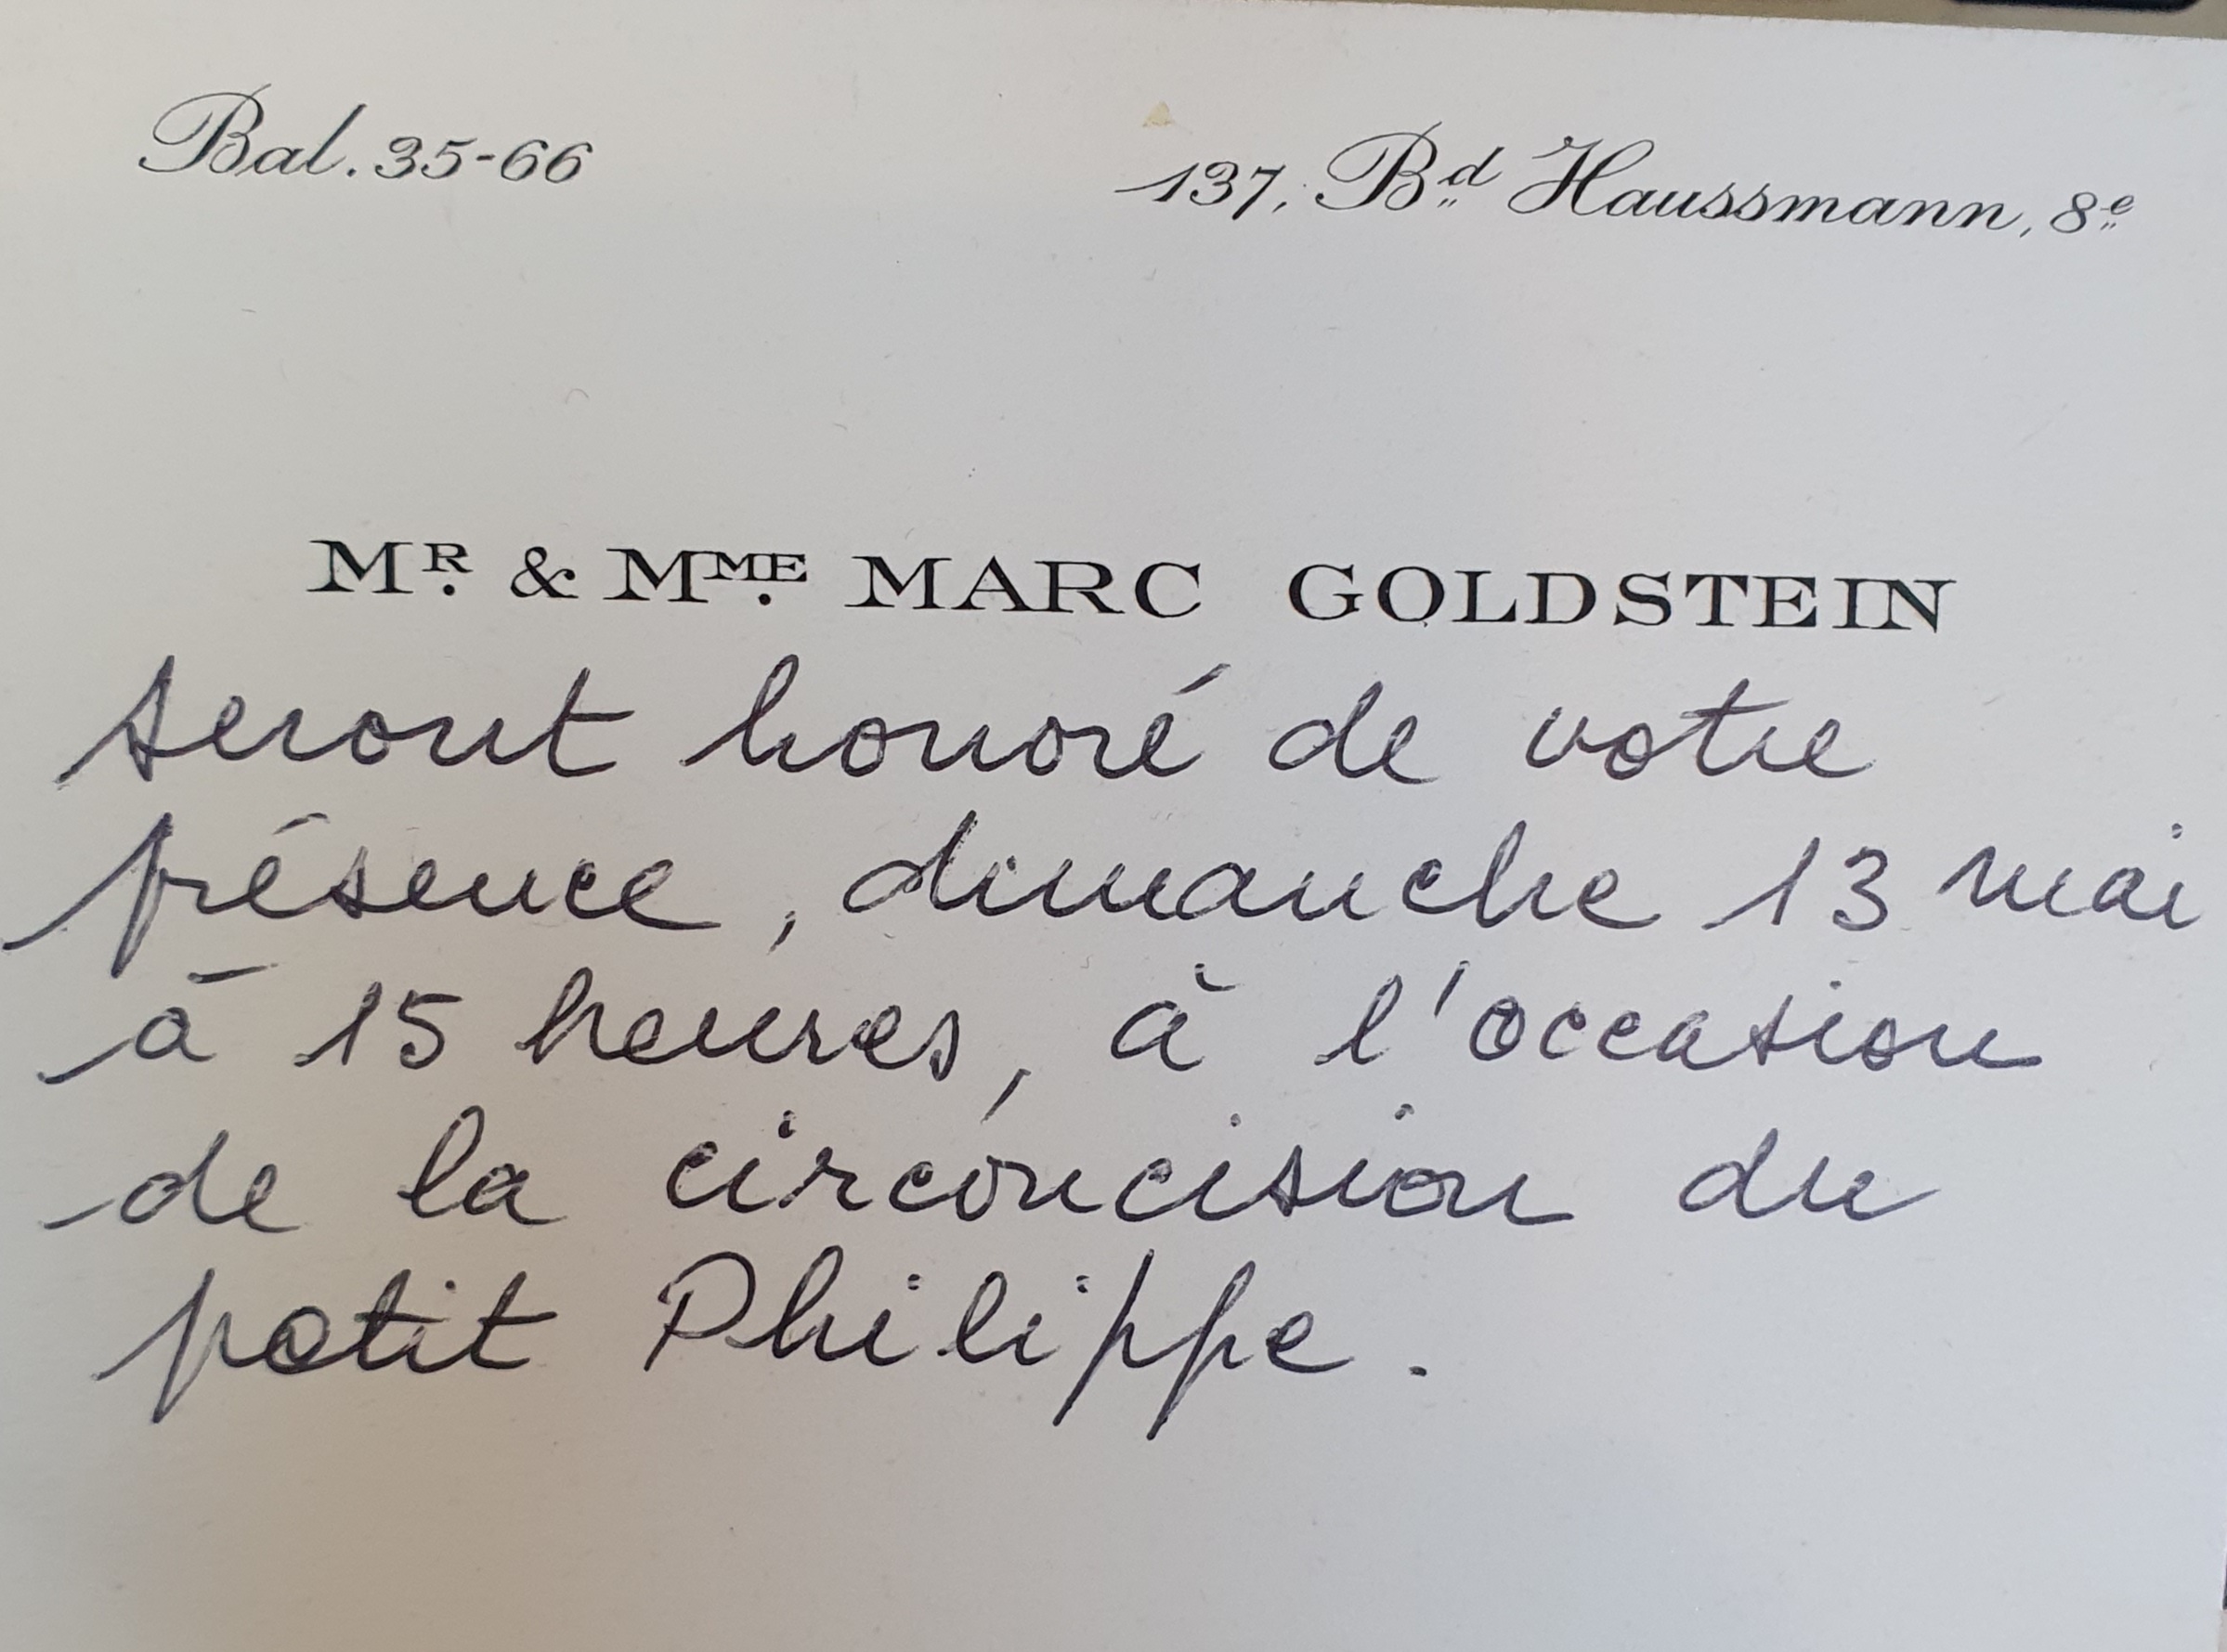 Bal. 35-66
137, Bd Haussmann, 8e
MR. & MME. MARC GOLDSTEIN
seront honoré de votre
présence, dimanche 13 mai
à 15 heures, à l'occasion
de la circoncision du
petit Philippe.